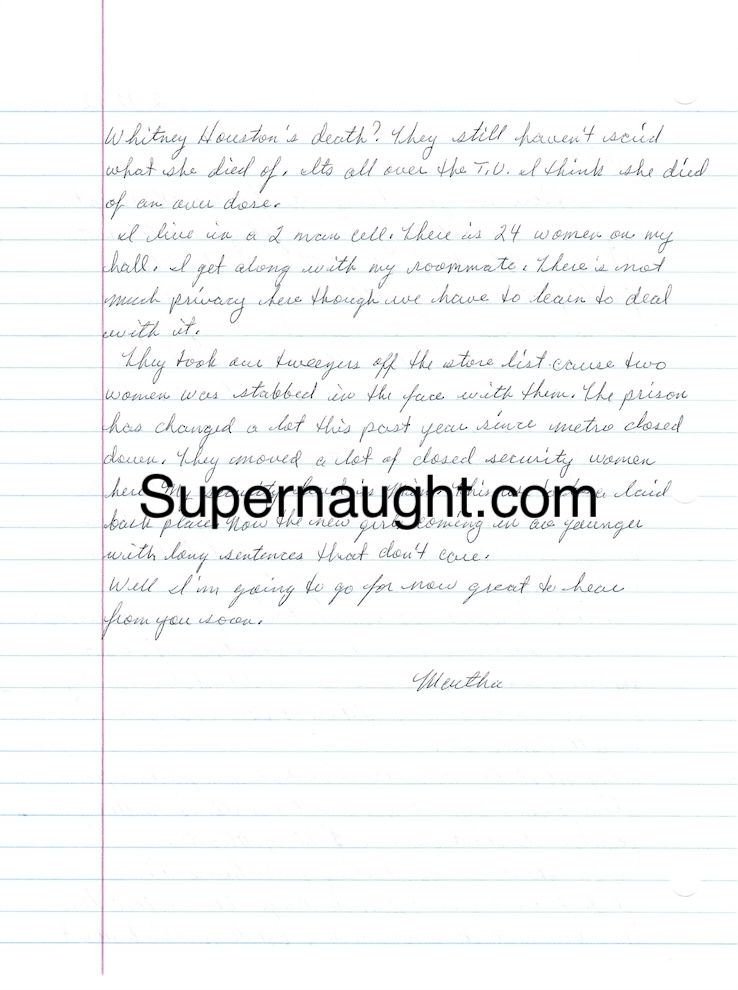 Whitney Houston's death? They still haven't said
what she died of. Its all over the T.V. I think she died
of an over dose.
I live in a 2 man cell. There is 24 women on my
hall. I get along with my roommate. There's not
much privacy here though we have to learn to deal
with it.
They took our tweezers off the store list cause two
women was stabbed in the face with them. The prison
has changed a lot this past year since metro closed
down. They moved a lot of closed security women
here. My security
Supernaught.com
laid
back place. Now the new girls coming in are younger
with long sentences that don't care.
Well I'm going to go for now great to hear
from you soon.
Martha